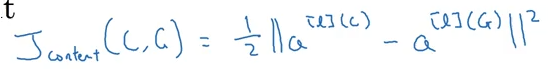 t
J_content(C,G) = 1/2 ||a^[l](C) - a^[l](G)||^2